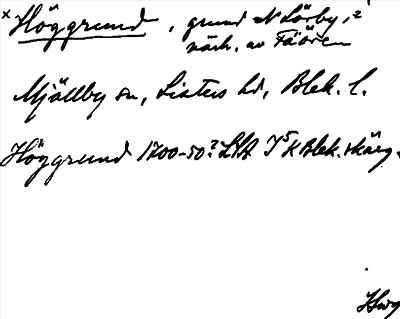 x Höggrund, grund N Lörby,
näsh. av Fäören
Mjällby sn, Listers hd, Blek. l.
Höggrund 1700-50? LSA Blek. skärg.